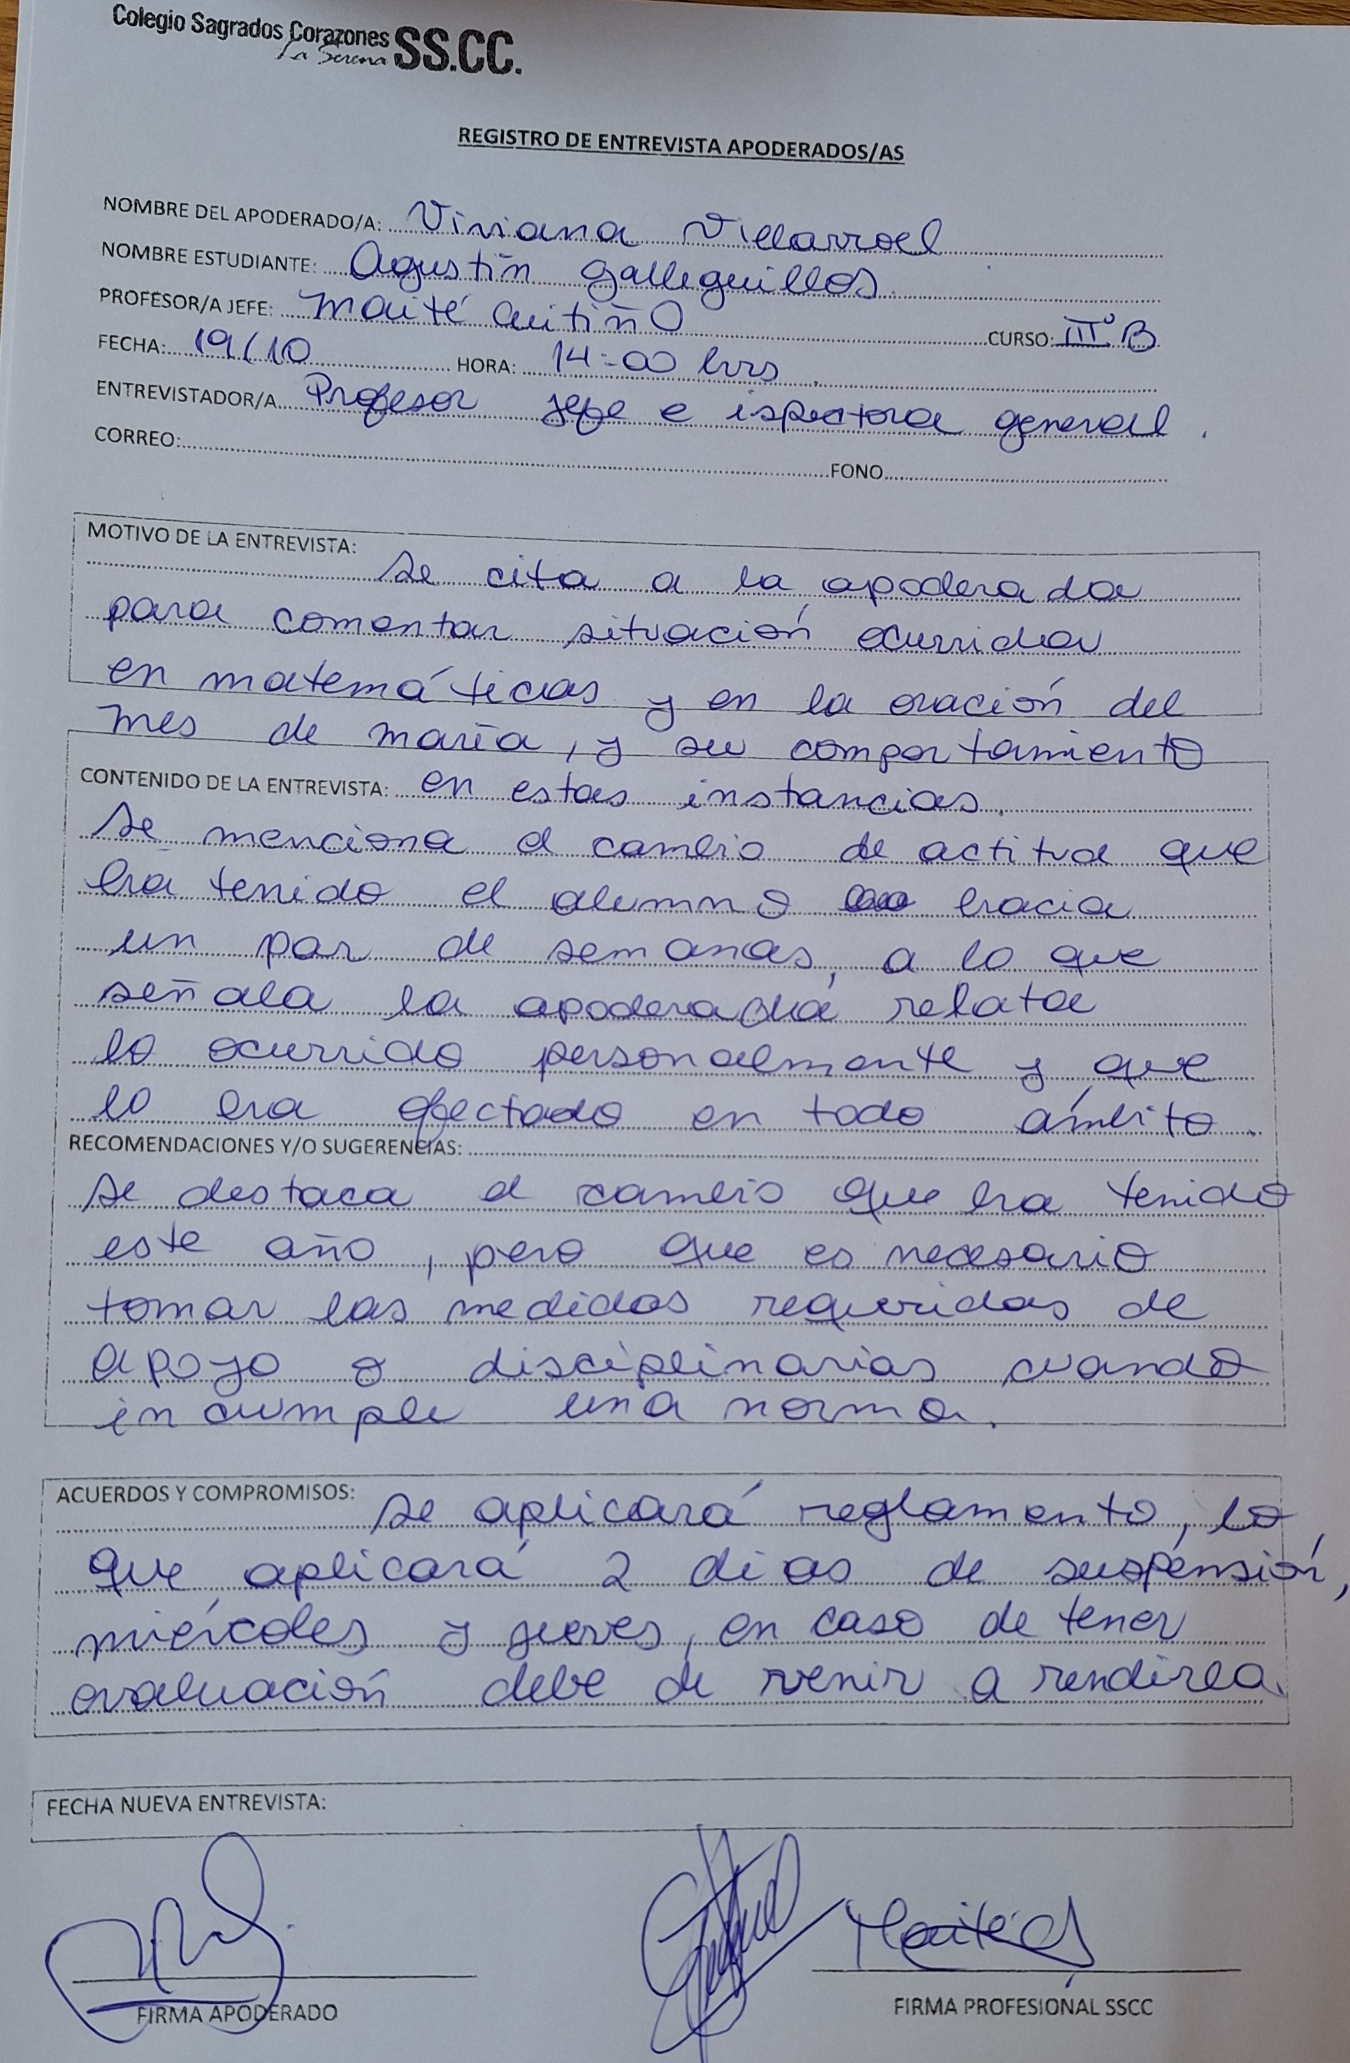 Colegio Sagrados Corazones SS.CC.
La Serena
REGISTRO DE ENTREVISTA APODERADOS/AS
NOMBRE DEL APODERADO/A: Viviana Villarroel
NOMBRE ESTUDIANTE: Agustín Galleguillos
PROFESOR/A JEFE: Maité Cuitiño CURSO: III°B
FECHA: 19/10 HORA: 14:00 hrs
ENTREVISTADOR/A Profesor jefe e ispectora general.
CORREO: FONO
MOTIVO DE LA ENTREVISTA:
Se cita a la apoderada
para comentar situación ocurrida
en matemáticas y en la oración del
mes de maría, y su comportamiento
CONTENIDO DE LA ENTREVISTA: en estas instancias.
Se menciona el cambio de actitud que
ha tenido el alumno hacia
un par de semanas, a lo que
señala la apoderada relata
lo ocurrido personalmente y que
lo ha afectado en todo ámbito.
RECOMENDACIONES Y/O SUGERENCIAS:
Se destaca el cambio que ha tenido
este año, pero que es necesario
tomar las medidas requeridas de
apoyo o disciplinarias cuando
incumple una norma.
ACUERDOS Y COMPROMISOS:
Se aplicará reglamento, lo
que aplicará 2 días de suspensión,
miércoles y jueves, en caso de tener
evaluación debe de venir a rendirla.
FECHA NUEVA ENTREVISTA:
FIRMA APODERADO
FIRMA PROFESIONAL SSCC